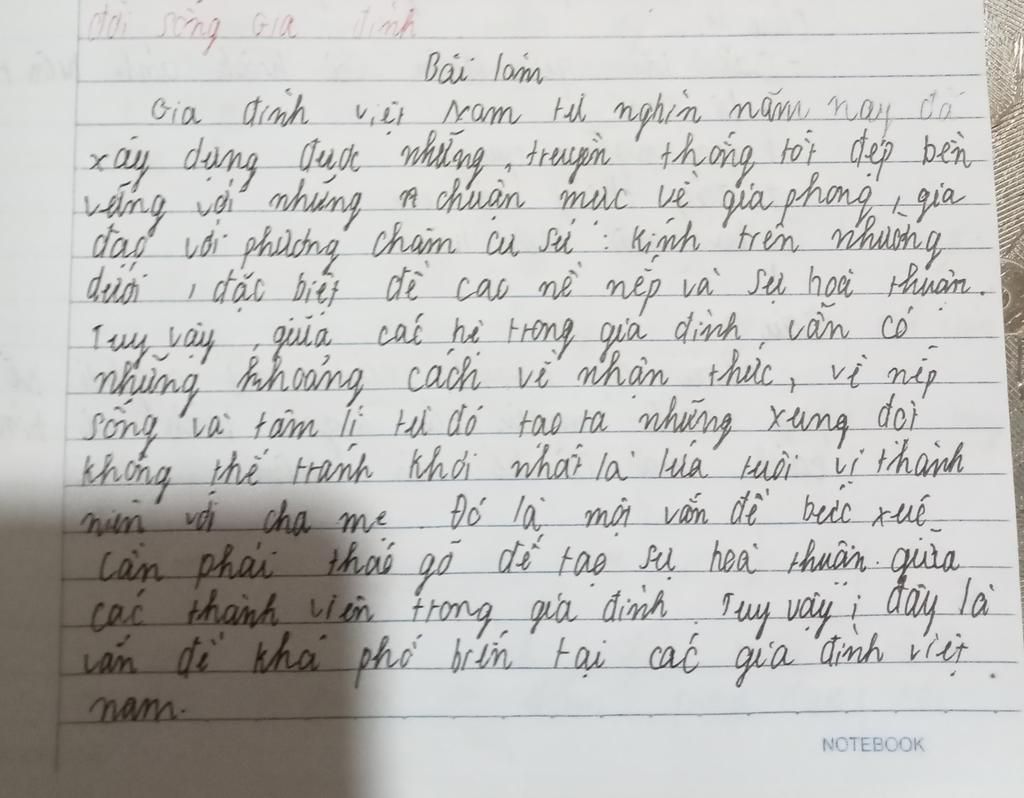 đời sống gia đình
Bài làm
Gia đình việt Nam từ nghìn năm nay đã
xây dựng được những, truyền thống tốt đẹp bền
vững với những chuẩn mực về gia phong, gia
đạo với phương châm cư sử : Kính trên nhường
dưới, đặc biệt đề cao nề nếp và sự hoà thuận.
Tuy vậy, giữa các hệ trong gia đình, vẫn có
những khoảng cách về nhận thức, về nếp
sống và tâm lí từ đó tạo ra những xung đột
không thể tránh khỏi nhất là lứa tuổi vị thành
niên với cha mẹ. Đó là một vấn đề bức xúc
Cần phải tháo gỡ để tạo sự hoà thuận giữa
các thành viên trong gia đình. Tuy vậy, đây là
vấn đề khá phổ biến tại các gia đình việt
nam.
NOTEBOOK